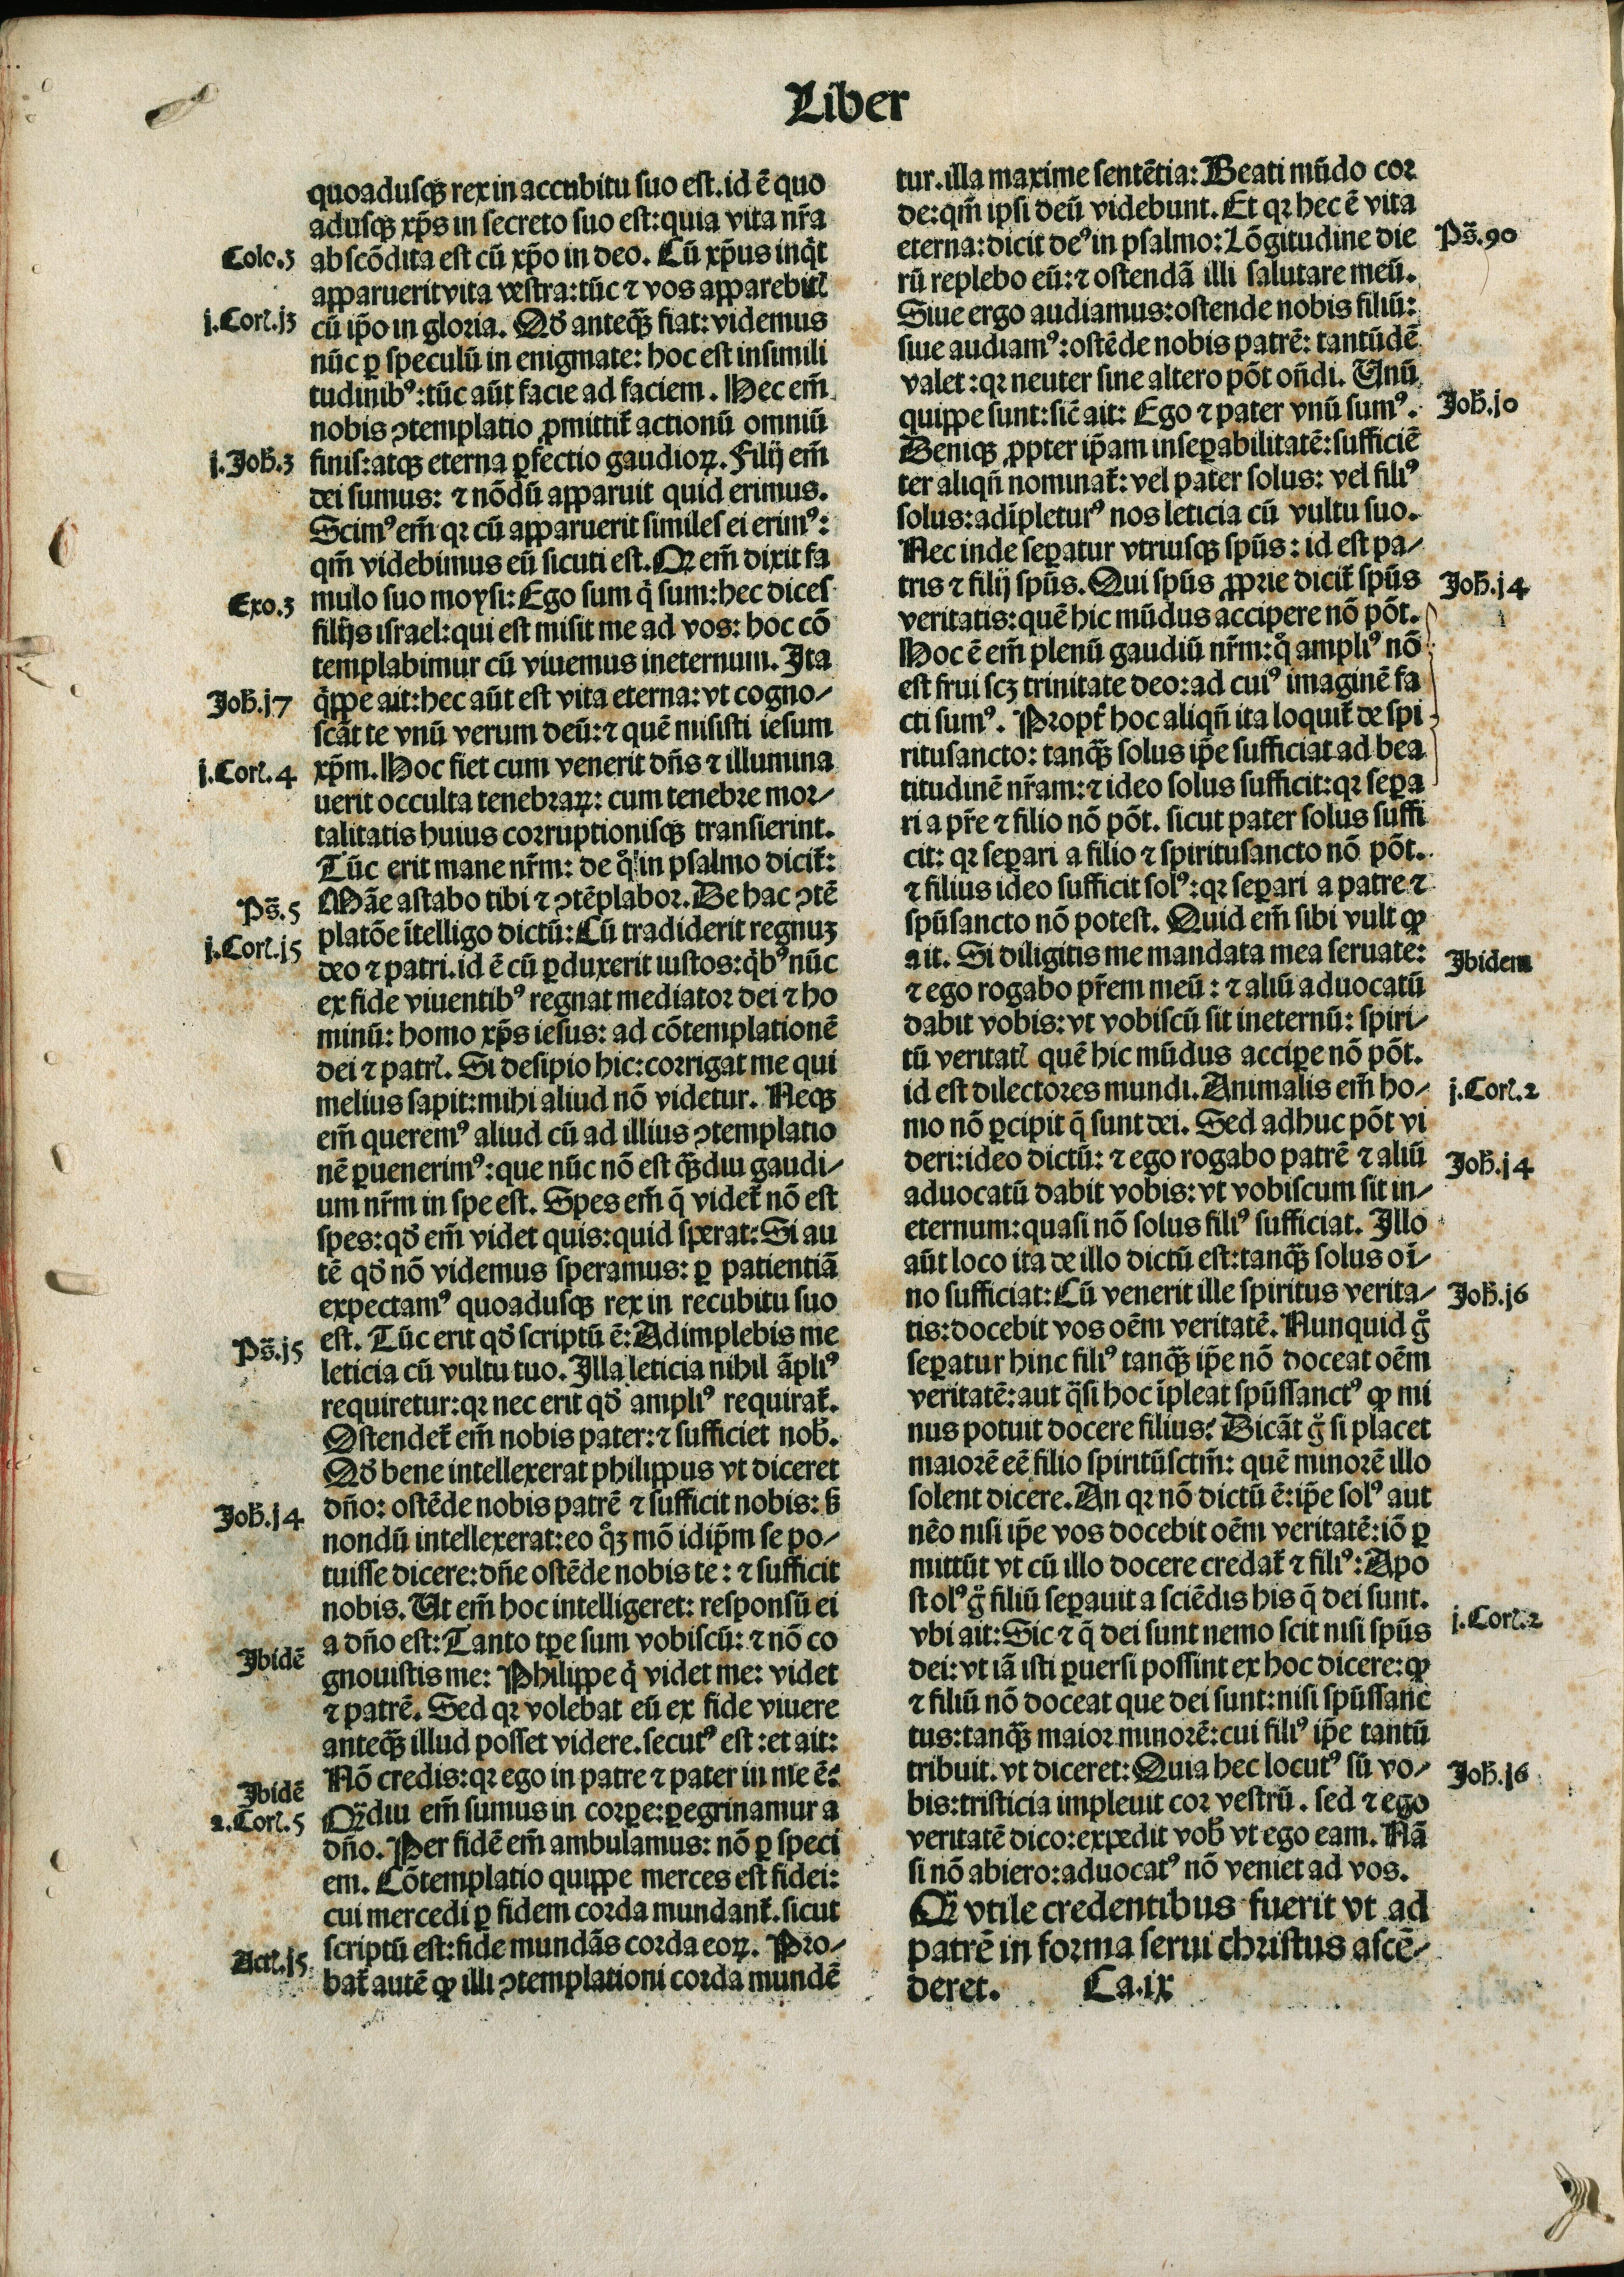 Liber
quoadusqꝫ rex in accubitu suo est. id ē quo
adusqꝫ xp̄s in secreto suo est: quia vita nr̄a
Colo.3
abscōdita est cū xp̄o in deo. Cū xp̄us inqͥt
apparuerit vita vestra: tūc ⁊ vos apparebitꝭ
j.Corꝭ.j3
cū ip̄o in gloria. Qd̄ anteqꝫ̄ fiat: videmus
nūc ꝑ speculū in enigmate: hoc est in simili
tudinibꝰ: tūc aūt facie ad faciem. Hec em̄
nobis ꝯtemplatio ꝓmittit̄ actionū omniū
j.Joh̄.3
finis: atqꝫ eterna ꝑfectio gaudioꝝ. Filij em̄
dei sumus: ⁊ nōdū apparuit quid erimus.
Scimꝰ em̄ qꝛ cū apparuerit similes ei erimꝰ:
qm̄ videbimus eū sicuti est. Qꝛ em̄ dixit fa
Exo.3
mulo suo moysi: Ego sum qͥ sum: hec dices
filijs israel: qui est misit me ad vos: hoc cō
templabimur cū viuemus ineternum. Ita
Joh̄.j7
qͥppe ait: hec aūt est vita eterna: vt cogno⸗
scāt te vnū verum deū: ⁊ quē misisti iesum
j.Corꝭ.4
xp̄m. Hoc fiet cum venerit dn̄s ⁊ illumina
uerit occulta tenebraꝝ: cum tenebre mor⸗
talitatis huius corruptionisqꝫ transierint.
Tūc erit mane nr̄m: de qͦ in psalmo dicit̄:
Ps̄.5
Māe astabo tibi ⁊ ꝯtēplabor. De hac ꝯtē
j.Corꝭ.j5
platōe ītelligo dictū: Cū tradiderit regnuꝫ
deo ⁊ patri. id ē cū ꝑduxerit iustos: qͥbꝰ nūc
ex fide viuentibꝰ regnat mediator dei ⁊ ho
minū: homo xp̄s iesus: ad cōtemplationē
dei ⁊ patrꝭ. Si desipio hic: corrigat me qui
melius sapit: mihi aliud nō videtur. Neqꝫ
em̄ queremꝰ aliud cū ad illius ꝯtemplatio
nē ꝑuenerimꝰ: que nūc nō est qꝫ̄diu gaudi⸗
um nr̄m in spe est. Spes em̄ q̄ videt̄ nō est
spes: qd̄ em̄ videt quis: quid sperat: Si au
tē qd̄ nō videmus speramus: ꝑ patientiā
expectamꝰ quoadusqꝫ rex in recubitu suo
Ps̄.j5
est. Tūc erit qd̄ scriptū ē: Adimplebis me
leticia cū vultu tuo. Illa leticia nihil āpliꝰ
requiretur: qꝛ nec erit qd̄ ampliꝰ requirat̄.
Ostendet̄ em̄ nobis pater: ⁊ sufficiet nob̄.
Qd̄ bene intellexerat philippus vt diceret
Joh̄.j4
dn̄o: ostēde nobis patrē ⁊ sufficit nobis: ß
nondū intellexerat: eo qͦꝫ mō idip̄m se po⸗
tuisse dicere: dn̄e ostēde nobis te: ⁊ sufficit
nobis. Ut em̄ hoc intelligeret: responsū ei
Ibidē
a dn̄o est: Tanto tꝑe sum vobiscū: ⁊ nō co
gnouistis me: Philippe qͥ videt me: videt
⁊ patrē. Sed qꝛ volebat eū ex fide viuere
anteqꝫ̄ illud posset videre. secutꝰ est: et ait:
Ibidē
Nō credis: qꝛ ego in patre ⁊ pater in me ē:
2.Corꝭ.5
Qꝫ̄diu em̄ sumus in corꝑe: ꝑegrinamur a
dn̄o. Per fidē em̄ ambulamus: nō ꝑ speci
em. Cōtemplatio quippe merces est fidei:
cui mercedi ꝑ fidem corda mundant̄. sicut
Actꝭ.j5.
scriptū est: fide mundās corda eoꝝ. Pro⸗
bat̄ autē ꝙ illi ꝯtemplationi corda mundē
tur. illa maxime sentētia: Beati mūdo cor
de: qm̄ ipsi deū videbunt. Et qꝛ hec ē vita
Ps̄.90
eterna: dicit deꝰ in psalmo: Lōgitudine die
rū replebo eū: ⁊ ostendā illi salutare meū.
Siue ergo audiamus: ostende nobis filiū:
siue audiamꝰ: ostēde nobis patrē: tantūdē
valet: qꝛ neuter sine altero pōt on̄di. Unū
Joh̄.j0
quippe sunt: sic̄ ait: Ego ⁊ pater vnū sumꝰ.
Deniqꝫ ꝓpter ip̄am inseꝑabilitatē: sufficiē
ter aliqn̄ nominat̄: vel pater solus: vel filiꝰ
solus: adīpleturꝰ nos leticia cū vultu suo.
Nec inde seꝑatur vtriusqꝫ spūs: id est pa⸗
Joh̄.j4
tris ⁊ filij spūs. Qui spūs ꝓprie dicit̄ spūs
veritatis: quē hic mūdus accipere nō pōt.
Hoc ē em̄ plenū gaudiū nr̄m: qͦ ampliꝰ nō
est frui scꝫ trinitate deo: ad cuiꝰ imaginē fa
cti sumꝰ. Propt̄ hoc aliqn̄ ita loquit̄ de spi
ritusancto: tanqꝫ̄ solus ip̄e sufficiat ad bea
titudinē nr̄am: ⁊ ideo solus sufficit: qꝛ seꝑa
ri a pr̄e ⁊ filio nō pōt. sicut pater solus suffi
cit: qꝛ seꝑari a filio ⁊ spiritusancto nō pōt.
⁊ filius ideo sufficit solꝰ: qꝛ seꝑari a patre ⁊
spūsancto nō potest. Quid em̄ sibi vult ꝙ
Ibidem
ait. Si diligitis me mandata mea seruate:
⁊ ego rogabo pr̄em meū: ⁊ aliū aduocatū
dabit vobis: vt vobiscū sit ineternū: spiri⸗
tū veritatꝭ quē hic mūdus acciꝑe nō pōt.
j.Corꝭ.2
id est dilectores mundi. Animalis em̄ ho⸗
mo nō ꝑcipit q̄ sunt dei. Sed adhuc pōt vi
Joh̄.j4
deri: ideo dictū: ⁊ ego rogabo patrē ⁊ aliū
aduocatū dabit vobis: vt vobiscum sit in⸗
eternum: quasi nō solus filiꝰ sufficiat. Illo
aūt loco ita de illo dictū est: tanqꝫ̄ solus oī⸗
Joh̄.j6
no sufficiat: Cū venerit ille spiritus verita⸗
tis: docebit vos oēm veritatē. Nunquid gͦ
seꝑatur hinc filiꝰ tanqꝫ̄ ip̄e nō doceat oēm
veritatē: aut qͣsi hoc īpleat spūssanctꝰ ꝙ mi
nus potuit docere filius: Dicāt gͦ si placet
maiorē eē filio spiritūsctm̄: quē minorē illo
solent dicere. An qꝛ nō dictū ē: ip̄e solꝰ aut
nēo nisi ip̄e vos docebit oēm veritatē: iō ꝑ
mittūt vt cū illo docere credat̄ ⁊ filiꝰ: Apo
stolꝰ gͦ filiū seꝑauit a sciēdis his q̄ dei sunt.
j.Corꝭ.2
vbi ait: Sic ⁊ q̄ dei sunt nemo scit nisi spūs
dei: vt iā isti ꝑuersi possint ex hoc dicere: ꝙ
⁊ filiū nō doceat que dei sunt: nisi spūssanc
tus: tanqꝫ̄ maior minorē: cui filiꝰ ip̄e tantū
Joh̄.j6
tribuit. vt diceret: Quia hec locutꝰ sū vo⸗
bis: tristicia impleuit cor vestrū. sed ⁊ ego
veritatē dico: expedit vob̄ vt ego eam. Nā
si nō abiero: aduocatꝰ nō veniet ad vos.
Qꝫ̄ vtile credentibus fuerit vt ad
patrē in forma serui christus ascē⸗
deret. Ca.ix